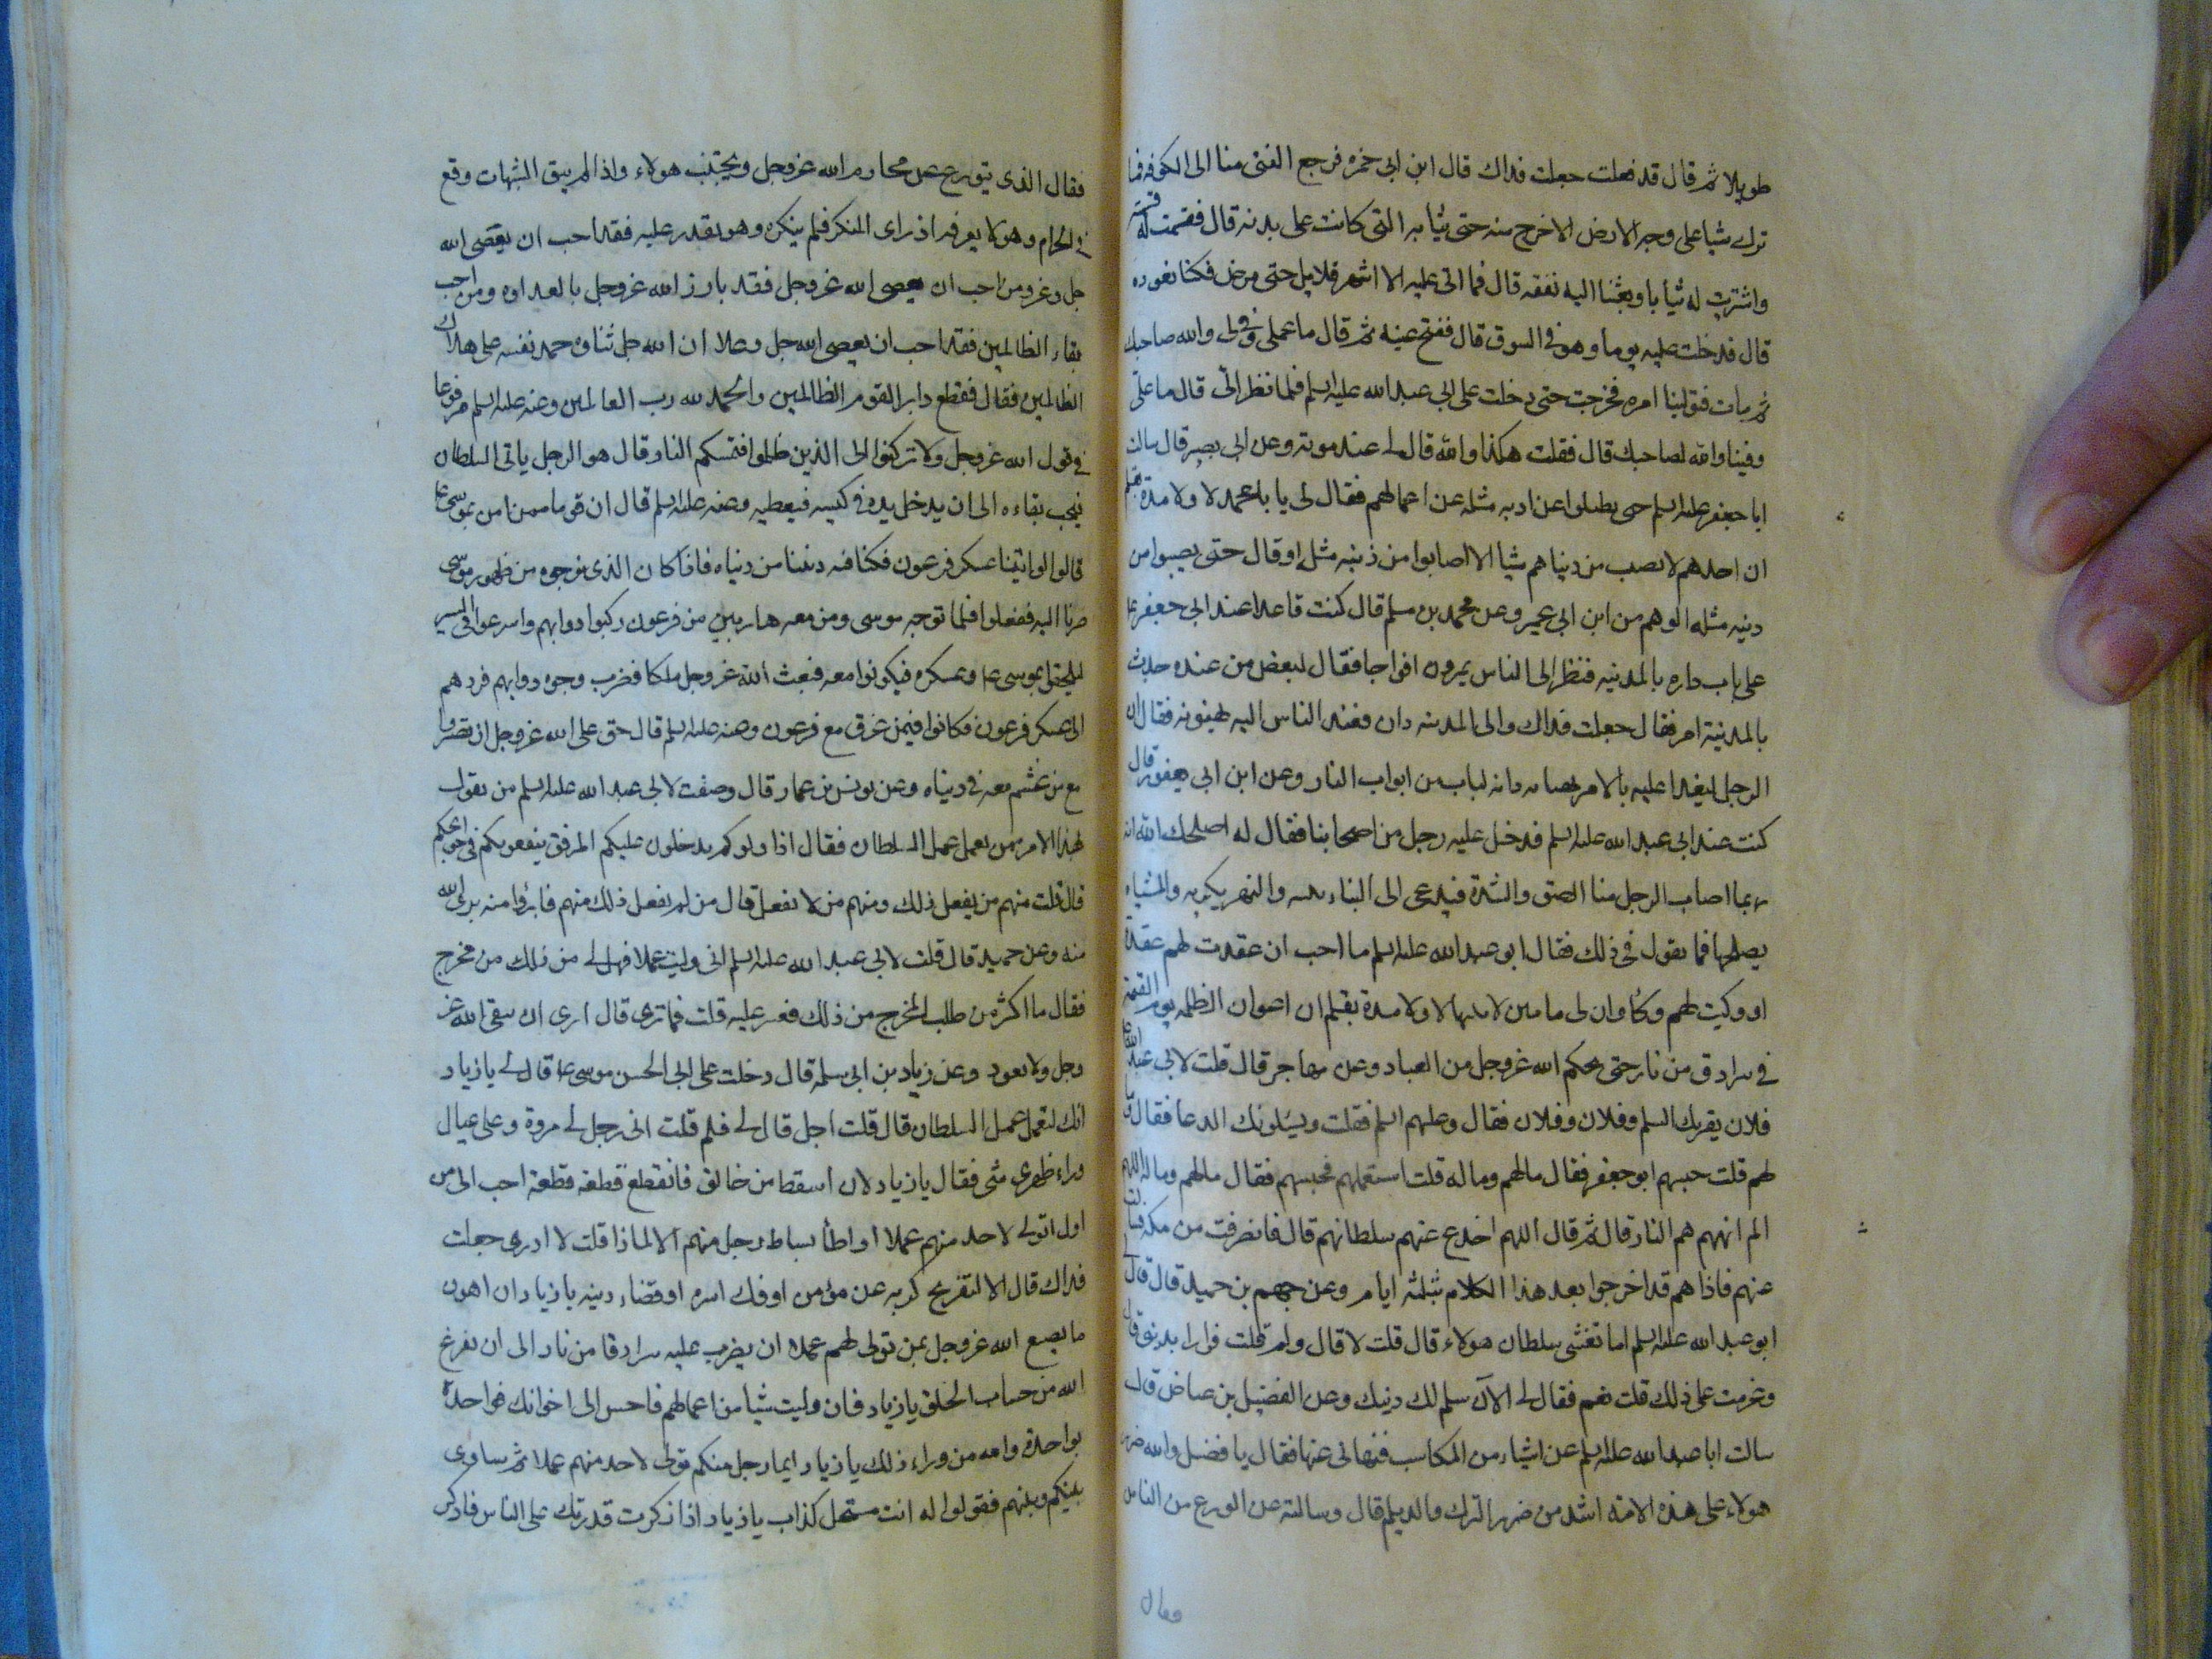 طويلا ثم قال قد فعلت جعلت فداك قال ابن ابي حمزه فرجع الفتى منا الى الكوفه فما
ترك شيا على وجه الارض الا خرج منه حتى ثيابه التى كانت على بدنه قال فقسمت له قسمه
واشتريت له ثيابا وبعثنا اليه نفقه قال فما اتى عليه الا اشهر قلايل حتى مرض فكنا نعوده
قال فدخلت عليه يوما وهو في السوق قال ففتح عينه ثم قال يا على وفى لى والله صاحبك
ثم مات فتولينا امره فخرجت حتى دخلت على ابي عبد الله عليه السلم فلما نظر الىّ قال يا علىّ
وفينا والله لصاحبك قال فقلت هكذا والله قال لى عند موته وعن ابي بصير قال سالت
ابا جعفر عليه السلم عن اعمالهم فقال لى يا با محمد لا ولا مدة قلم
ان احدهم لا يصيب من دنياهم شيا الا اصابوا من دينه مثله او قال حتى يصيبوا من
دينه مثله الوهم من ابن ابي عمير وعن محمد بن مسلم قال كنت قاعدا عند ابي جعفر ع
على باب داره بالمدينه فنظر الى الناس يمرون افواجا فقال لبعض من عنده حدث
بالمدينة امر فقال جعلت فداك والى المدينه فغدا الناس اليه يهنونه فقال ان
الرجل ليغدا عليه بالامر وانه لباب من ابواب النار وعن ابن ابي يعفور قال
كنت عند ابي عبد الله عليه السلم فدخل عليه رجل من اصحابنا فقال له اصلحك الله انه
ربما اصاب الرجل منا الضيق والشدة فيدعى الى البناء يبنيه والنهر يكريه والمسناه
يصلحها فما يقول فى ذلك فقال ابو عبد الله عليه السلم ما احب ان عقدت لهم عقدة
او وكيت لهم وكاء وان لى ما بين لابتيها لا ولا مدة بقلم ان اعوان الظلمه يوم القيمة
في سرادق من نار حتى يحكم الله عز وجل من العباد وعن مهاجر قال قلت لابي عبد الله ع
فلان يقرئك السلم وفلان وفلان فقال وعليهم السلم فقلت ويسئلونك الدعا فقال وما
لهم قلت حبسهم ابو جعفر فقال مالهم وماله قلت استعملهم فحبسهم فقال مالهم وماله
الم انههم هم النار قال ثم قال اللهم اخدع عنهم سلطانهم قال فانصرفت من مكه فسالت
عنهم فاذا هم قد اخرجوا بعد هذا الكلام بثلثه ايام وعن جهم بن حميد قال قال
ابو عبد الله عليه السلم اما تغشى سلطان هولاء قال قلت لا قال ولم قلت فرارا بدينى قال
وعزمت على ذلك قلت نعم فقال لى الآن سلم لك دينك وعن الفضيل بن عياض قال
سالت ابا عبد الله عليه السلم عن اشياء من المكاسب فنهانى عنها فقال يا فضيل والله ضرر
هولاء على هذه الامة اشد من ضرر الترك والديلم قال وسالته عن الورع من الناس
فقال
فقال الذى يتورع عن محارم الله عز وجل ويجتنب هولاء واذا لم يتق الشبهات وقع
في الحرام وهو لا يعرفه اذ راى المنكر فلم ينكره وهو يقدر عليه فقد احب ان يعصى الله
جل وعز ومن احب ان يعصى الله عز وجل فقد بارز الله عز وجل بالعداوه ومن احب
بقاء الظالمين فقد احب ان يعصى الله جل وعلا ان الله جل ثناؤه حمد نفسه على هلاك
الظالمين فقال فقطع دابر القوم الظالمين والحمد لله رب العالمين وعنه عليه السلم مرفوعا
في قول الله عز وجل ولا تركنوا الى الذين ظلموا فتمسكم النار قال هو الرجل ياتى السلطان
فيحب بقاءه الى ان يدخل يده في كيسه فيعطيه وعنه عليه السلم قال ان قوما ممن امن بموسى ع
قالوا لو اتينا عسكر فرعون فكنا فيه ونلنا من دنياه فاذا كان الذى نرجوه من ظهور موسى
صرنا اليه ففعلوا فلما توجه موسى ومن معه هاربين من فرعون ركبوا دوابهم واسرعوا في السير
ليلحقوا بموسى ع وعسكره فيكونوا معه فبعث الله عز وجل ملكا فضرب وجوه دوابهم فردهم
الى عسكر فرعون فكانوا فيمن غرق مع فرعون وعنه عليه السلم قال حق على الله عز وجل ان تصيروا
مع من عشتم معه في دنياه وعن يونس بن عمار قال وصفت لابي عبد الله عليه السلم من يقول
بهذا الامر ممن يعمل عمل السلطان فقال اذا ولوكم يدخلون عليكم المرفق وينفعونكم في حوايجكم
قال قلت منهم من يفعل ذلك ومنهم من لا يفعل قال من لم يفعل ذلك منهم فابرؤا منه برى الله
منه وعن حميد قال قلت لابي عبد الله عليه السلم انى وليت عملا فهل لى من ذلك من مخرج
فقال ما اكثر من طلب المخرج من ذلك فعسر عليه قلت فما ترى قال ارى ان تتقى الله عز
وجل ولا تعود وعن زياد بن ابي سلمه قال دخلت على ابي الحسن موسى ع قال لى يا زياد
انك لتعمل عمل السلطان قال قلت اجل قال لى فلم قلت انى رجل لى مروة وعلى عيال
وراء ظهرى شى فقال يا زياد لان اسقط من حالق فانقطع قطعة قطعة احب الى من
ان اتولى لاحد منهم عملا او اطأ بساط رجل منهم الا لماذا قلت لا ادرى جعلت
فداك قال الا لتفريج كربه عن مؤمن او فك اسره او قضاء دينه يا زياد ان اهون
ما يصنع الله عز وجل بمن تولى لهم عملا ان يضرب عليه سرادقا من نار الى ان يفرغ
الله من حساب الخلق يا زياد فان وليت شيا من اعمالهم فاحسن الى اخوانك فواحدة
بواحدة والله من وراء ذلك يا زياد ايما رجل منكم تولى لاحد منهم عملا ثم ساوى
بينكم وبينهم فقولوا له انت منتحل كذاب يا زياد اذا ذكرت قدرتك على الناس فاذكر